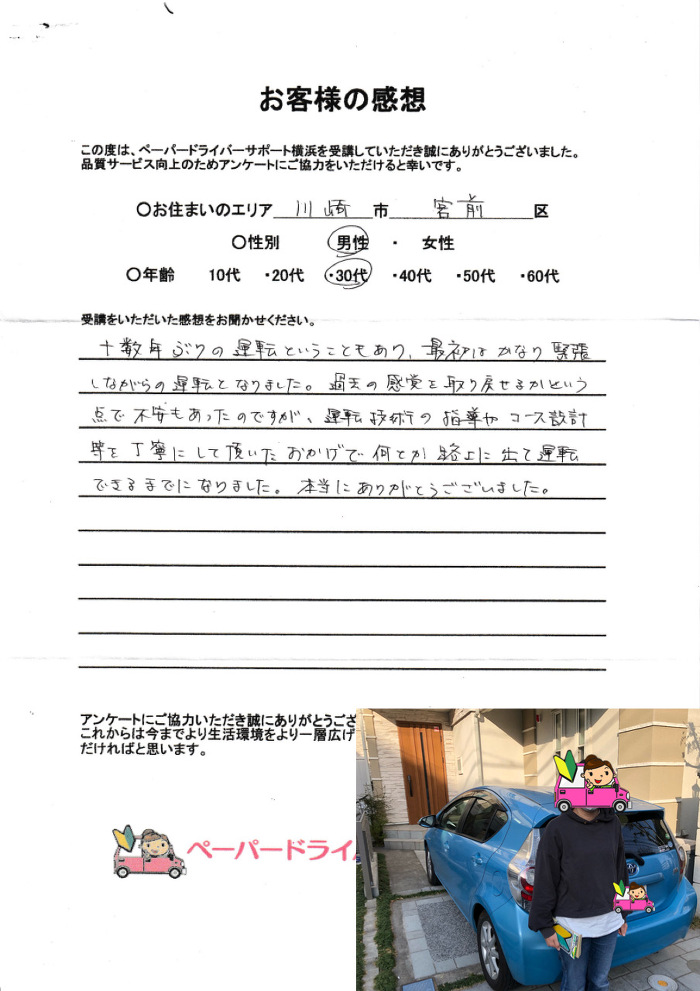 お客様の感想
この度は、ペーパードライバーサポート横浜を受講していただき誠にありがとうございました。
品質サービス向上のためアンケートにご協力をいただけると幸いです。
〇お住まいのエリア 川崎 市 宮前 区
〇性別 男性 ・ 女性
〇年齢 10代 ・20代 ・30代 ・40代 ・50代 ・60代
受講をいただいた感想をお聞かせください。
十数年ぶりの運転ということもあり、最初はかなり緊張
しながらの運転となりました。過去の感覚を取り戻せるかという
点で不安もあったのですが、運転技術の指導やコース設計
等を丁寧にして頂いたおかげで何とか路上に出て運転
できるまでになりました。本当にありがとうございました。
アンケートにご協力いただき誠にありがとうござ
これからは今までより生活環境をより一層広げ
だければと思います。
ペーパードライバ